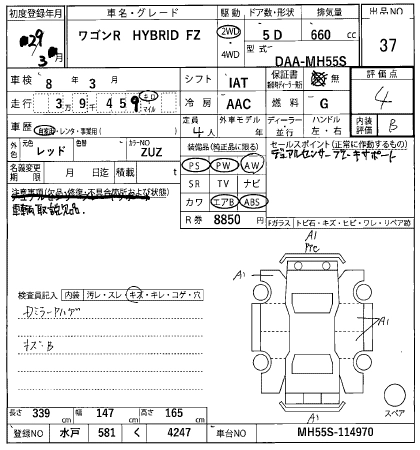 初度登録年月 車名・グレード 駆動 ドア数・形状 排気量 出品NO
H29 3月 ワゴンR HYBRID FZ 2WD 4WD 5D 660 cc 37
型式 DAA-MH55S
車検 8年 3月 シフト IAT 保証書 無 評価点
走行 3万9千459 キロ マイル 冷房 AAC 燃料 G 4
車歴 自家用・レンタ・事業用( ) 定員 4人 外車モデル 年 ディーラー・並行 ハンドル 左・右 内装評価 B
外色 元色 レッド 色替 カラーNO ZUZ 装備品(純正品に限る) セールスポイント(正常に動作するもの)
名義変更期限 月 日 積載 t PS PW AW デュアルセンサーブレーキサポート
注意事項(欠品・修復・不具合箇所および状態) SR TV ナビ
カワ エアB ABS
車輌取説欠品
R券 8850
Fガラス トビ石・キズ・ヒビ・ワレ・リペア跡
A1
A1
A1
検査員記入 内装 汚レ・スレ・キズ・キレ・コゲ・穴
DミラーハゲA1
キズB
A1
スペア
長さ 339 cm 幅 147 cm 高さ 165 cm
登録NO 水戸 581 く 4247 車台NO MH55S-114970